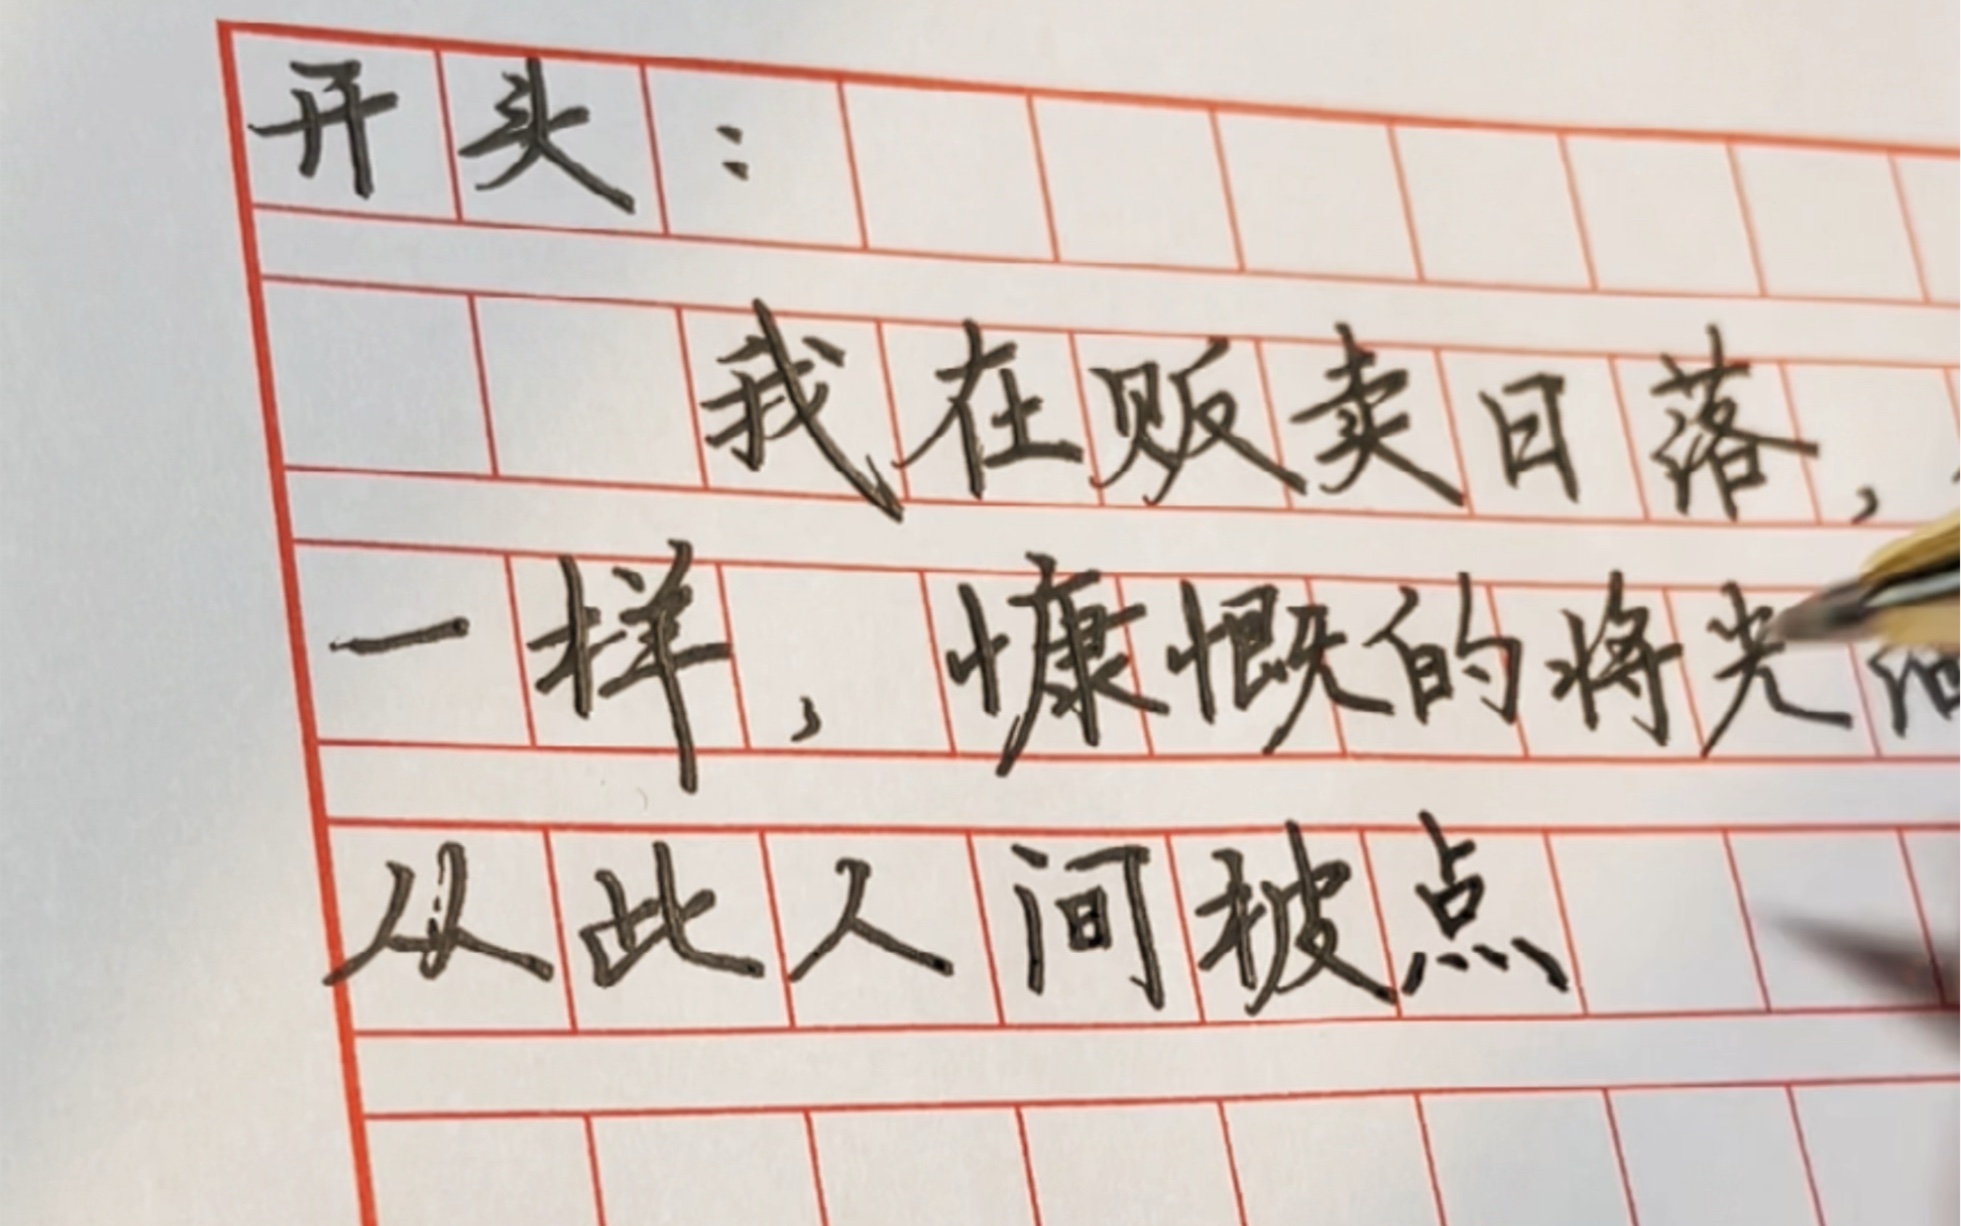 开头：
我在贩卖日落，
一样，慷慨的将光
从此人间被点